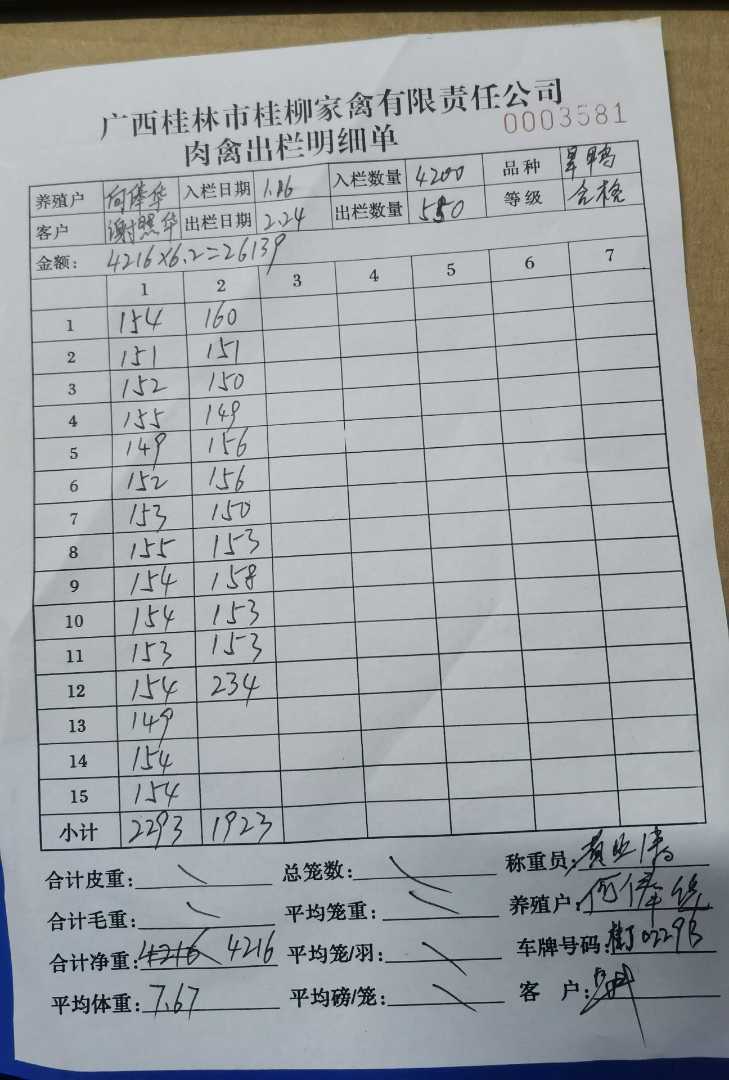 广西桂林市桂柳家禽有限责任公司
肉禽出栏明细单 0003581
养殖户 入栏日期 1.16 入栏数量 4200 品种
客户 谢照华 出栏日期 2.24 出栏数量 550 等级 合格
金额: 4216×6.2=26139
1 2 3 4 5 6 7
1 154 160
2 151 151
3 152 150
4 155 149
5 149 156
6 152 156
7 153 150
8 155 153
9 154 158
10 154 153
11 153 153
12 154 234
13 149
14 154
15 154
小计 2293 1923
合计皮重: 总笼数: 称重员:
合计毛重: 平均笼重: 养殖户:
合计净重: 4216 4216 平均笼/羽: 车牌号码:
平均体重: 7.67 平均磅/笼: 客 户: